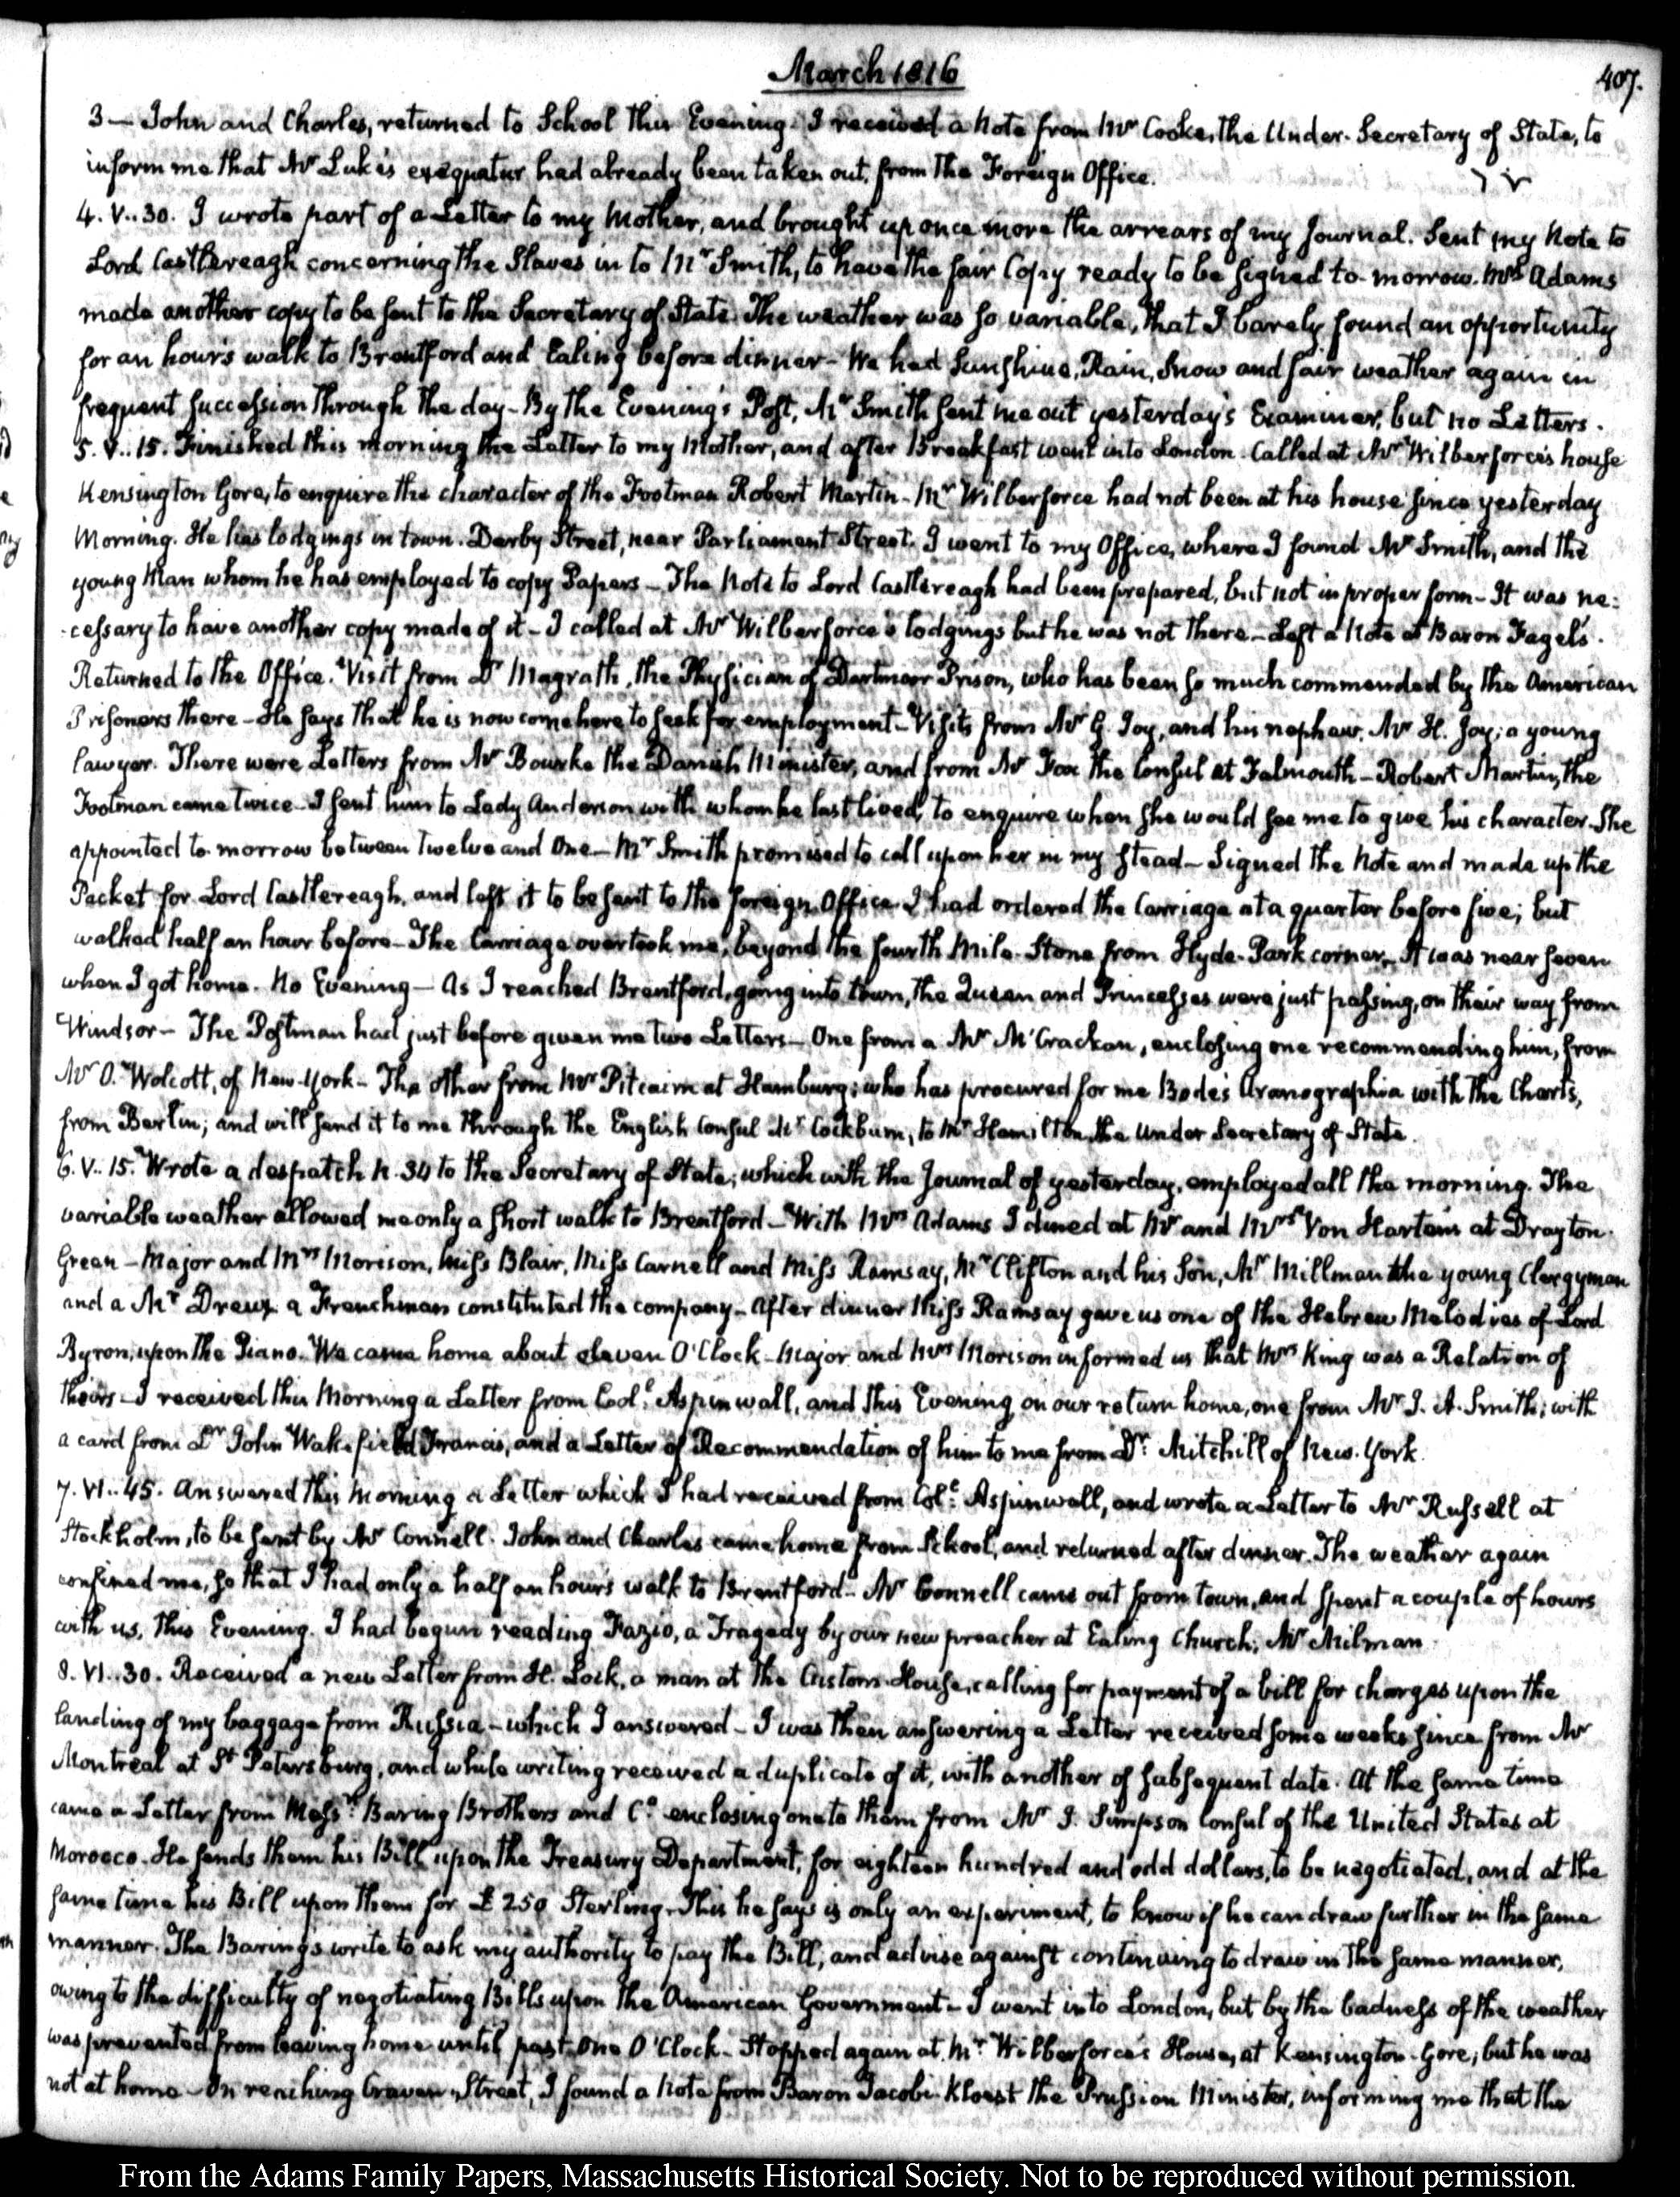 March 1816
407.
3— John and Charles, returned to School this Evening. I received a Note from Mr Cooke, the Under-Secretary of State, to
inform me that Mr Luke's exequatur had already been taken out, from the Foreign Office.
4. V..30. I wrote part of a Letter to my Mother, and brought up once more the arrears of my Journal. Sent my Note to
Lord Castlereagh concerning the Slaves in to Mr Smith, to have the fair Copy ready to be signed to-morrow. Mrs Adams
made another copy to be sent to the Secretary of State. The weather was so variable, that I barely found an opportunity
for an hour's walk to Brentford and Ealing before dinner— We had Sunshine, Rain, Snow and fair weather again in
frequent succession through the day— By the Evening's Post, Mr Smith sent me out yesterday's Examiner, but no Letters.
5. V..15. Finished this morning the Letter to my Mother, and after Breakfast went into London. Called at Mr Wilberforce's house
Kensington Gore, to enquire the character of the Footman Robert Martin— Mr Wilberforce had not been at his house since yesterday
Morning. He has lodgings in town. Derby Street, near Parliament Street. I went to my Office, where I found Mr Smith, and the
young Man whom he has employed to copy Papers— The Note to Lord Castlereagh had been prepared, but not in proper form— It was ne:
:cessary to have another copy made of it— I called at Mr Wilberforce's lodgings but he was not there— Left a Note at Baron Fagel's.
Returned to the Office. Visit from Dr Magrath, the Physician of Dartmoor Prison, who has been so much commended by the American
Prisoners there— He says that he is now come here to seek for employment— Visits from Mr G. Joy, and his nephew, Mr H. Joy; a young
Lawyer. There were Letters from Mr Bourke the Danish Minister, and from Mr Fox the Consul at Falmouth— Robert Martin, the
Footman came twice. I sent him to Lady Anderson with whom he last lived, to enquire when she would see me to give his character. She
appointed to-morrow between twelve and One— Mr Smith promised to call upon her in my stead— Signed the Note and made up the
Packet for Lord Castlereagh, and left it to be sent to the foreign Office. I had ordered the Carriage at a quarter before five; but
walked half an hour before— The Carriage overtook me, beyond the fourth Mile-Stone from Hyde-Park corner— It was near seven
when I got home. No Evening— As I reached Brentford, going into town, the Queen and Princesses were just passing, on their way from
Windsor— The Postman had just before given me two Letters— One from a Mr McCracken, enclosing one recommending him, from
Mr O. Wolcott, of New-York— The other from Mr Pitcairn at Hamburg; who has procured for me Bode's Uranographia with the Charts,
from Berlin; and will send it to me through the English Consul Mr Cockburn, to Mr Hamilton, the Under Secretary of State.
6. V..15. Wrote a despatch N. 34 to the Secretary of State; which with the Journal of yesterday, employed all the morning. The
variable weather allowed me only a short walk to Brentford— With Mrs Adams I dined at Mr and Mrs Von Harten's at Drayton-
Green— Major and Mrs Morison, Miss Blair, Miss Carnell and Miss Ramsay, Mr Clifton and his Son, Mr Millman the young Clergyman
and a Mr Dreux a Frenchman constituted the company— After dinner Miss Ramsay gave us one of the Hebrew Melodies of Lord
Byron, upon the Piano. We came home about eleven O'Clock— Major and Mrs Morison informed us that Mrs King was a Relation of
theirs— I received this Morning a Letter from Coll. Aspinwall, and this Evening on our return home, one from Mr J. A. Smith; with
a card from Dr John Wakefield Francis, and a Letter of Recommendation of him to me from Dr. Mitchill of New-York.
7. VI..45. Answered this Morning a Letter which I had received from Coll. Aspinwall, and wrote a Letter to Mr Russell at
Stockholm, to be sent by Mr Connell. John and Charles came home from School, and returned after dinner. The weather again
confined me, so that I had only a half an hour's walk to Brentford— Mr Connell came out from town, and spent a couple of hours
with us, this Evening. I had begun reading Fazio, a Tragedy by our new preacher at Ealing Church, Mr Milman.
8. VI..30. Received a new Letter from H. Lock, a man at the Custom-House, calling for payment of a bill for charges upon the
landing of my baggage from Russia— which I answered— I was then answering a Letter received some weeks since from Mr
Montreal at St Petersburg, and while writing received a duplicate of it, with another of subsequent date. At the same time
came a Letter from Messrs. Baring Brothers and Co. enclosing one to them from Mr J. Simpson Consul of the United States at
Morocco. He sends them his Bill upon the Treasury Department, for eighteen hundred and odd dollars, to be negotiated, and at the
same time his Bill upon them for £250 Sterling. This he says is only an experiment, to know if he can draw further in the same
manner. The Barings write to ask my authority to pay the Bill, and advise against continuing to draw in the same manner,
owing to the difficulty of negotiating Bills upon the American Government— I went into London, but by the badness of the weather
was prevented from leaving home until past One O'Clock— Stopped again at Mr Wilberforce's House, at Kensington-Gore; but he was
not at home— On reaching Craven Street, I found a Note from Baron Jacobi-Kloest the Prussian Minister, informing me that the
From the Adams Family Papers, Massachusetts Historical Society. Not to be reproduced without permission.